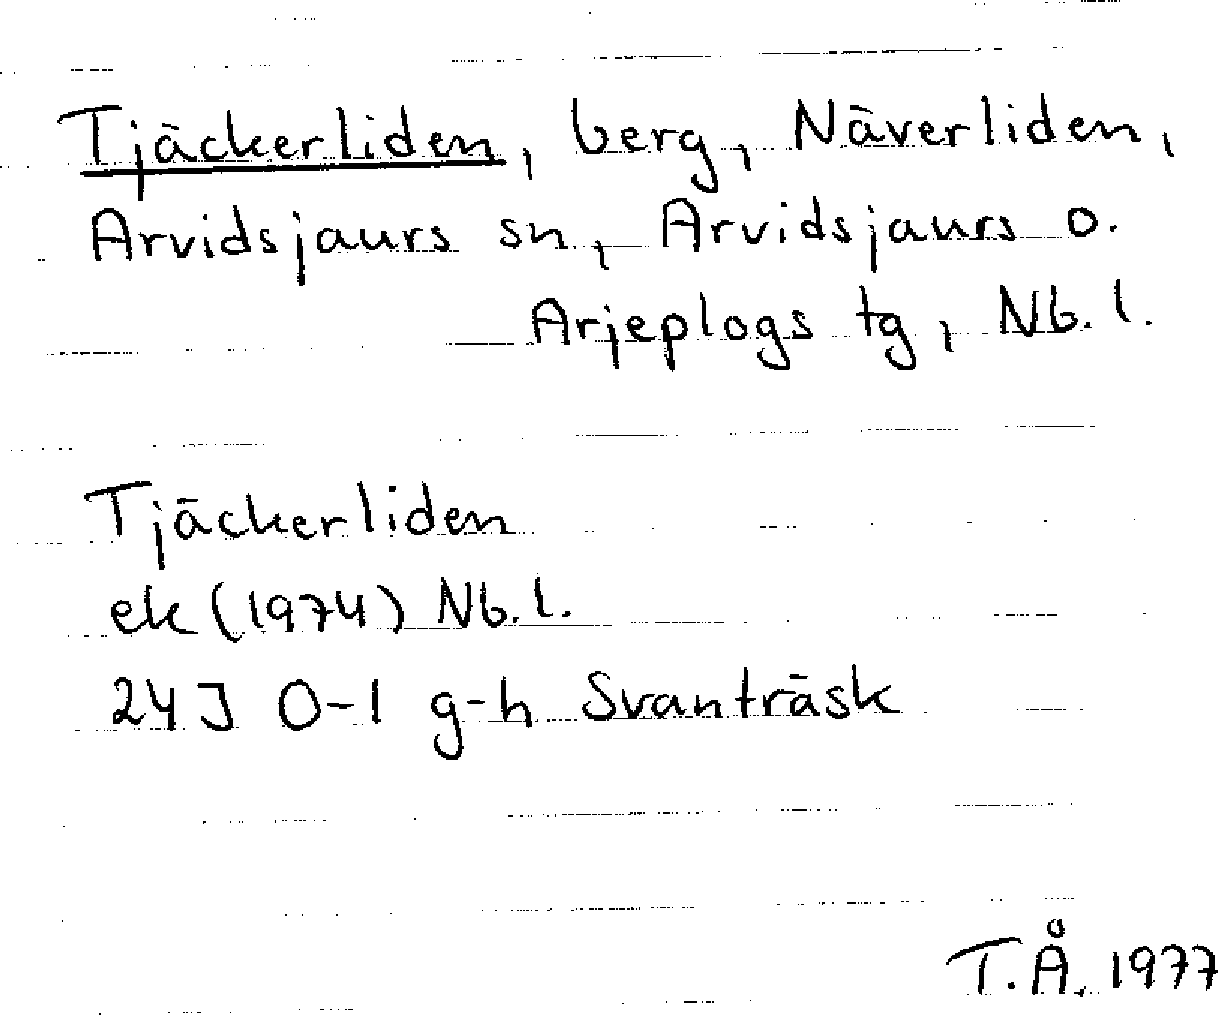 Tjäckerliden, berg, Näverliden,
Arvidsjaurs sn, Arvidsjaurs o.
Arjeplogs tg, Nb. l.
Tjäckerliden
ek (1974) Nb. l.
24 J 0-1 g-h Svanträsk
T. Å. 1977